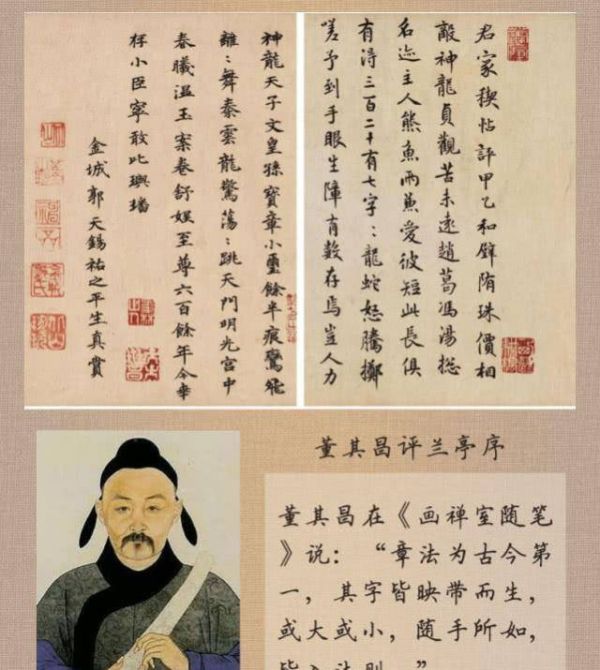 君家稧帖評甲乙和璧隋珠價相
敵神龍貞觀苦未遠趙葛馮湯總
名迹主人熊魚兩兼愛彼短此長俱
有淂三百二十有七字〻龍蛇怒騰擲
嗟予到手眼生障有數存焉豈人力
神龍天子文皇孫寶章小璽餘半痕鸞飛
離〻舞秦雲龍驚蕩〻跳天門明光宮中
春曦温玉案卷舒娱至尊六百餘年今幸
存小臣寧敢比璵璠
金城郭天錫祐之平生真賞
董其昌评兰亭序
董其昌在《画禅室随笔
》说：“章法为古今第
一，其字皆映带而生，
或大或小，随手所如，